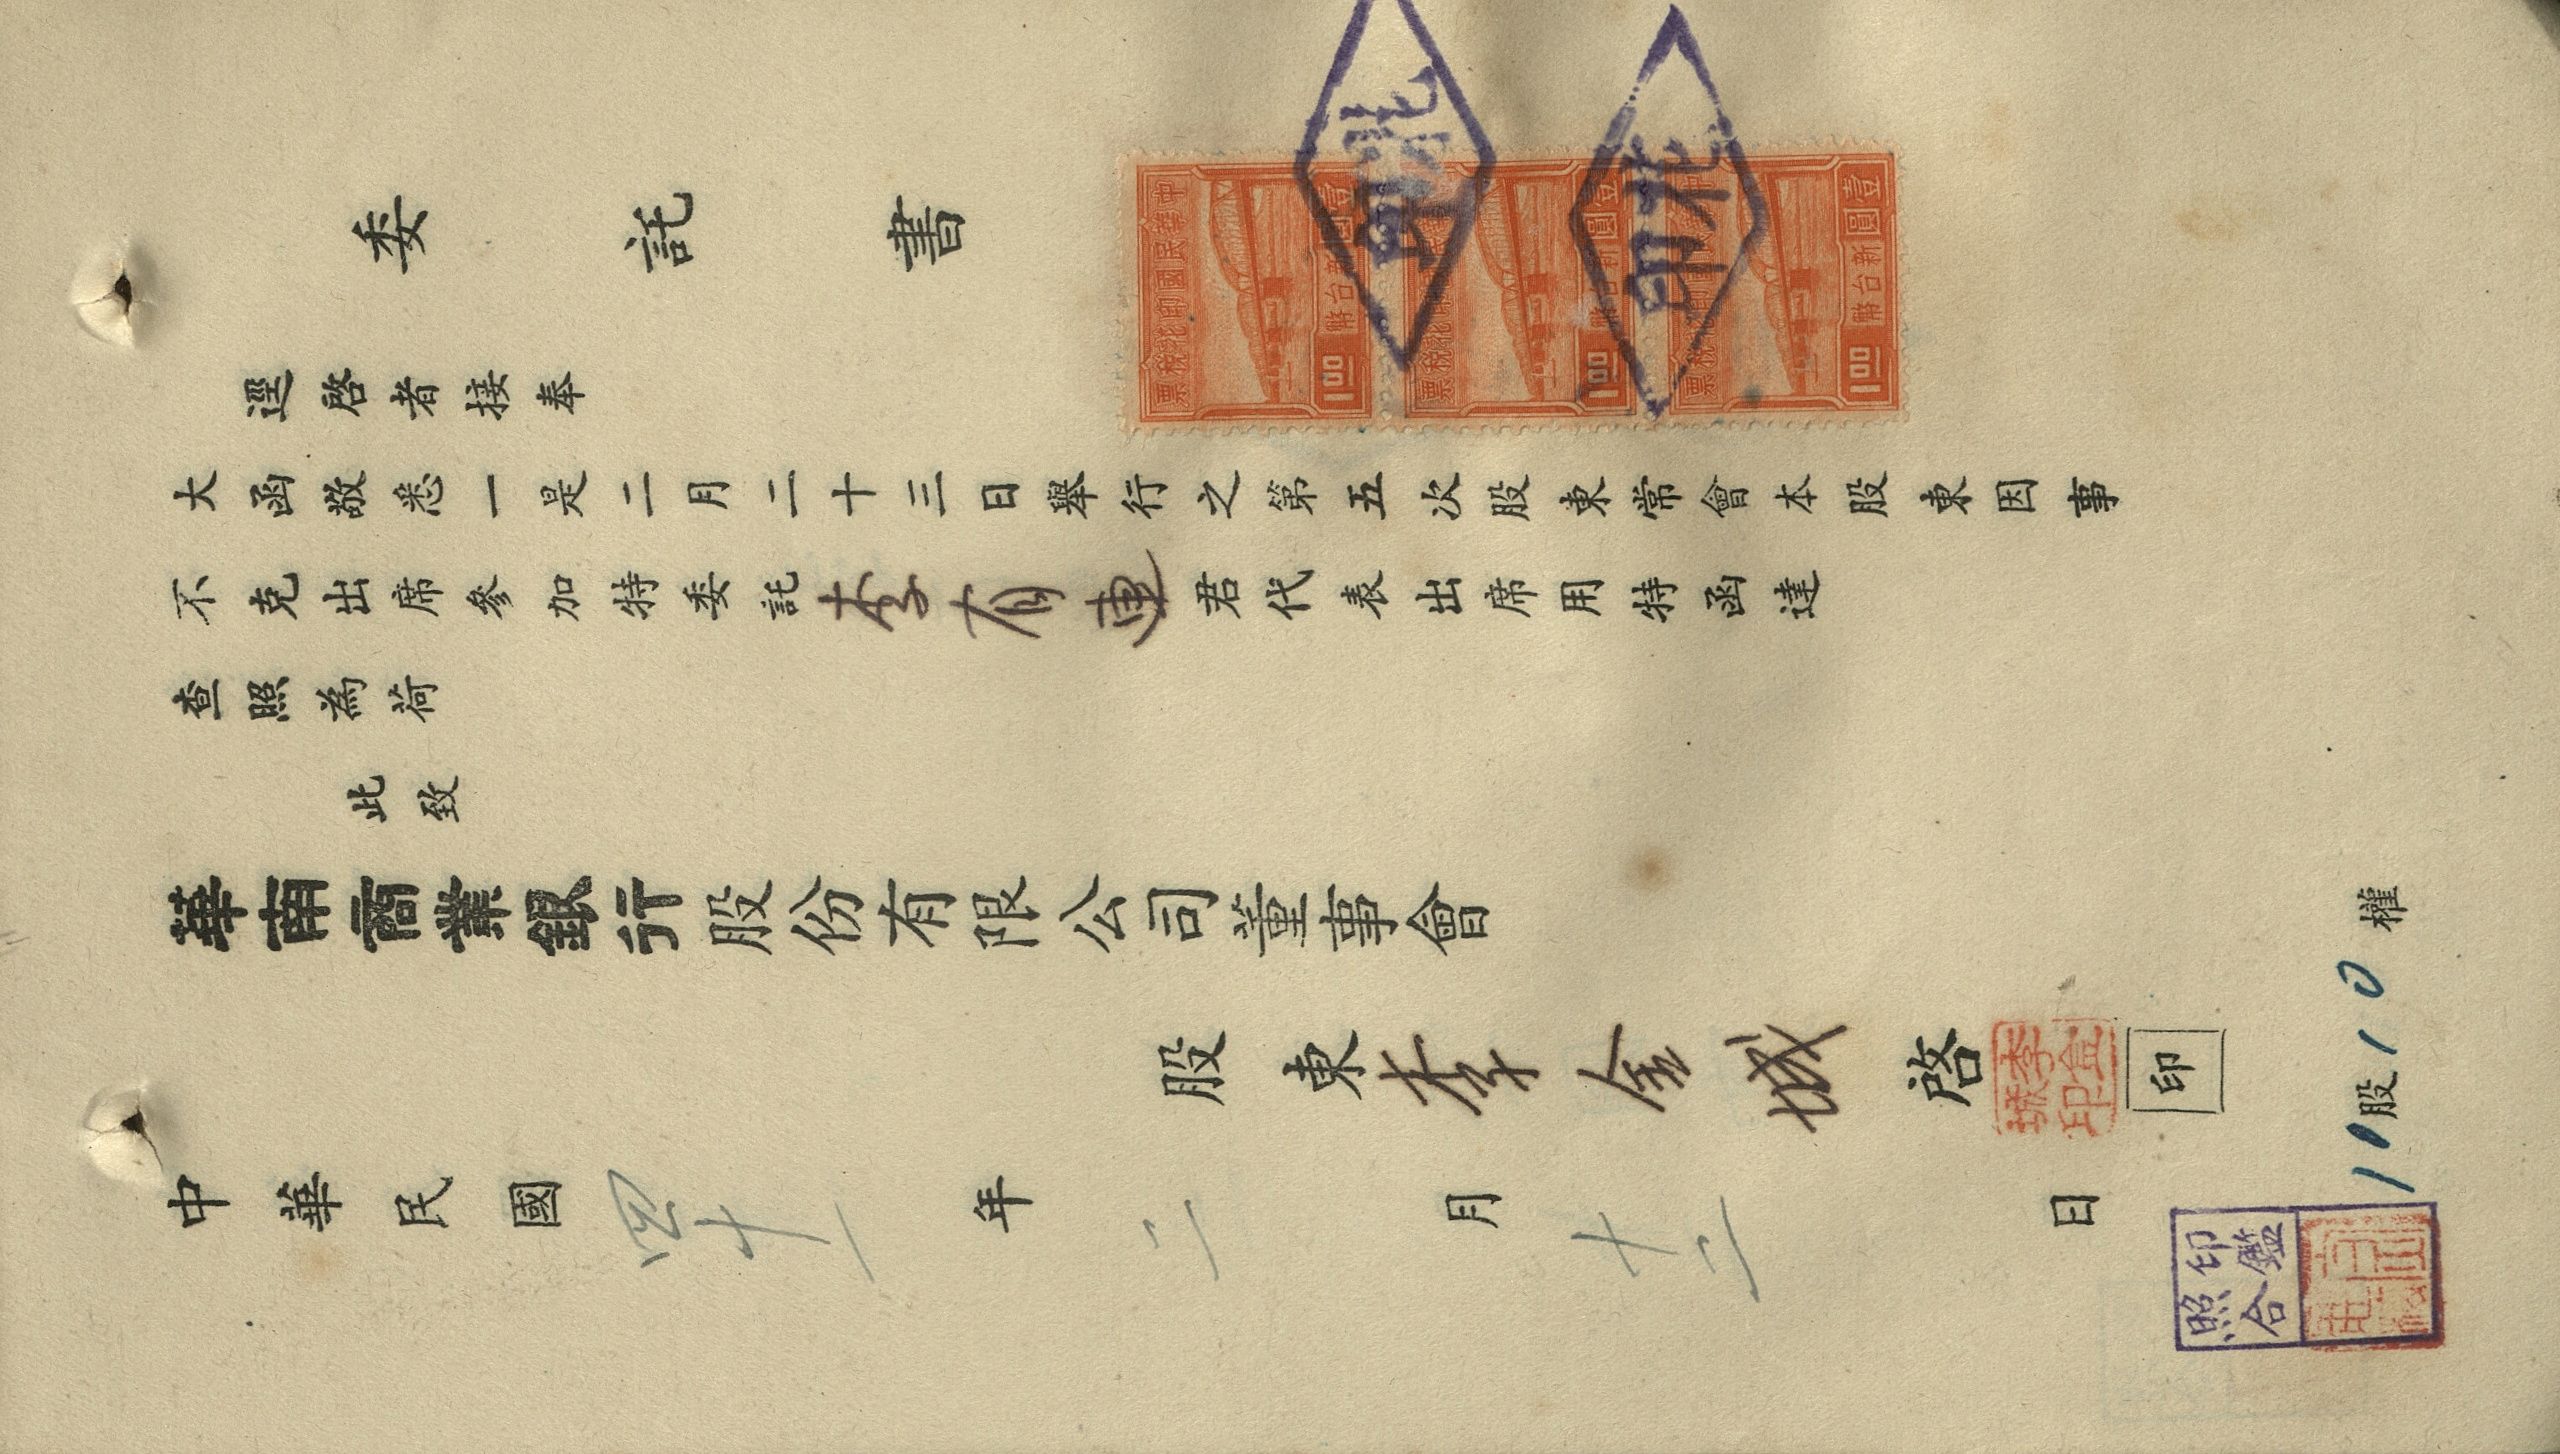 委託書
逕啓者接奉
大函敬悉一是二月二十三日舉行之第五次股東常會本股東因事
不克出席參加特委託李有連君代表出席用特函達
查照為荷
此致
華南商業銀行股份有限公司董事會
股東李金城啓
印
中華民國四十一年二月十二日
股10權
印鑑
照合
中華民國印花稅票
壹圓新台幣
1.00
壹圓新台幣
1.00
壹圓新台幣
1.00